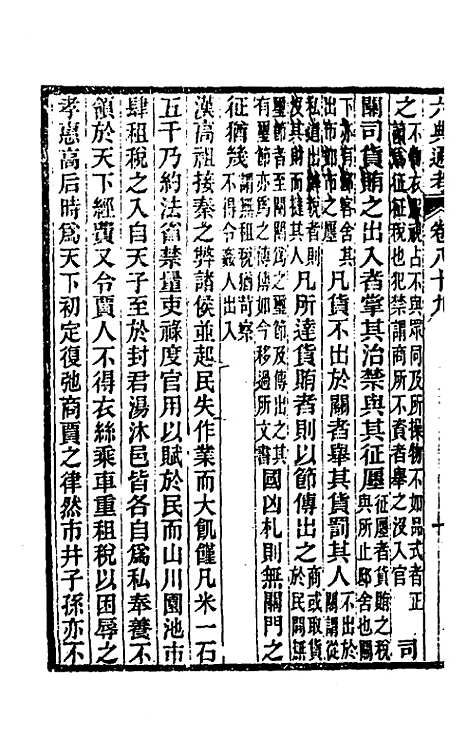 六典通考 卷八十九 十
之不物衣服視占不與眾同及所操物不如品式者正讀爲征征稅也犯禁謂商所不資者舉之沒入官 司
關司貨賄之出入者掌其治禁與其征廛征廛者貨賄之稅與所止邸舍也關
下亦有邸客舍其出布如市之廛凡貨不出於關者舉其貨罰其人不出於關謂從
私道出辟稅者則沒其財而撻其人凡所達貨賄者則以節傳出之商或取貨於民間無
璽節者至關關爲之璽節及傳出之其有璽節亦爲之傳傳如今移過所文書國凶札則無關門之
征猶幾謂無租稅猶苛察不得令姦人出入
漢高祖接秦之弊諸侯並起民失作業而大飢饉凡米一石
五千乃約法省禁量吏祿度官用以賦於民而山川園池市
肆租稅之入自天子至於封君湯沐邑皆各自爲私奉養不
領於天下經費又令賈人不得衣絲乘車重租稅以困辱之
孝惠高后時爲天下初定復弛商賈之律然市井子孫亦不